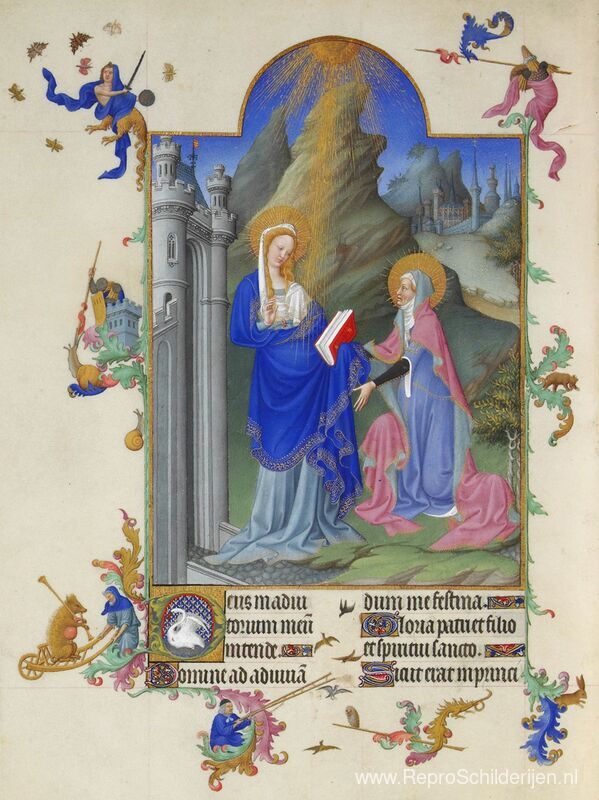 Deus in adiu
torium meū
intende.
Domine ad adiuuā
dum me festina.
Gloria patri et filio
et spiritui sancto.
Sicut erat in princi
www.ReproSchilderijen.nl